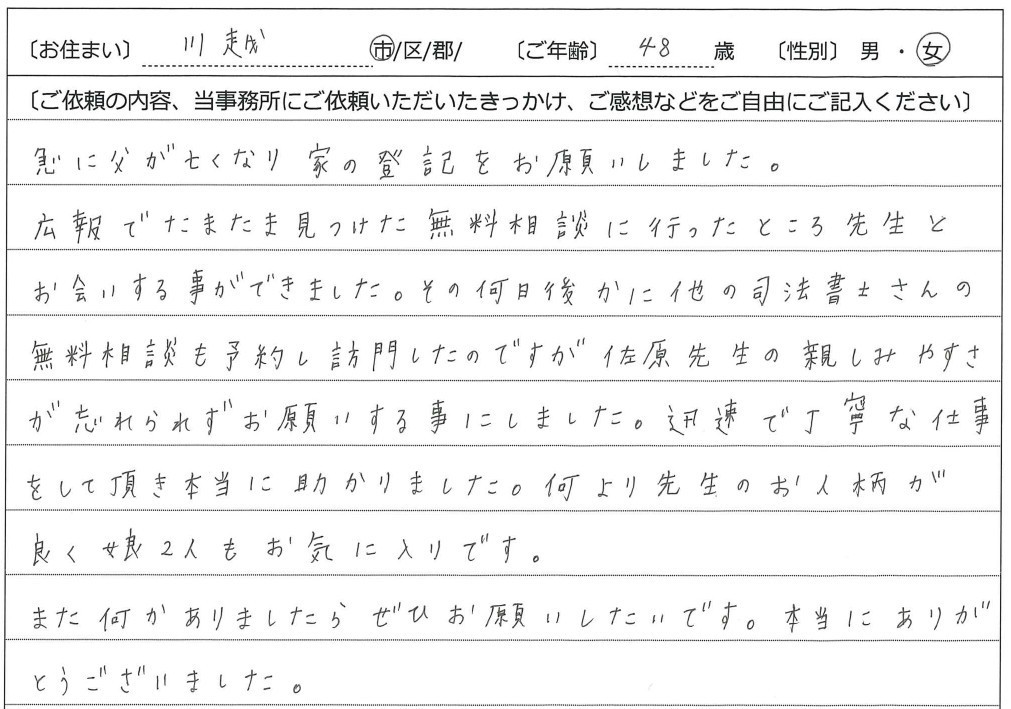 〔お住まい〕 川越 市/区/郡/ 〔ご年齢〕 48 歳 〔性別〕 男 ・ 女
〔ご依頼の内容、当事務所にご依頼いただいたきっかけ、ご感想などをご自由にご記入ください〕
急に父が亡くなり 家の登記をお願いしました。
広報でたまたま見つけた無料相談に行ったところ先生と
お会いする事ができました。その何日後かに他の司法書士さんの
無料相談も予約し訪問したのですが佐原先生の親しみやすさ
が忘れられずお願いする事にしました。迅速で丁寧な仕事
をして頂き本当に助かりました。何より先生のお人柄が
良く娘2人もお気に入りです。
また何かありましたらぜひお願いしたいです。本当にありが
とうございました。